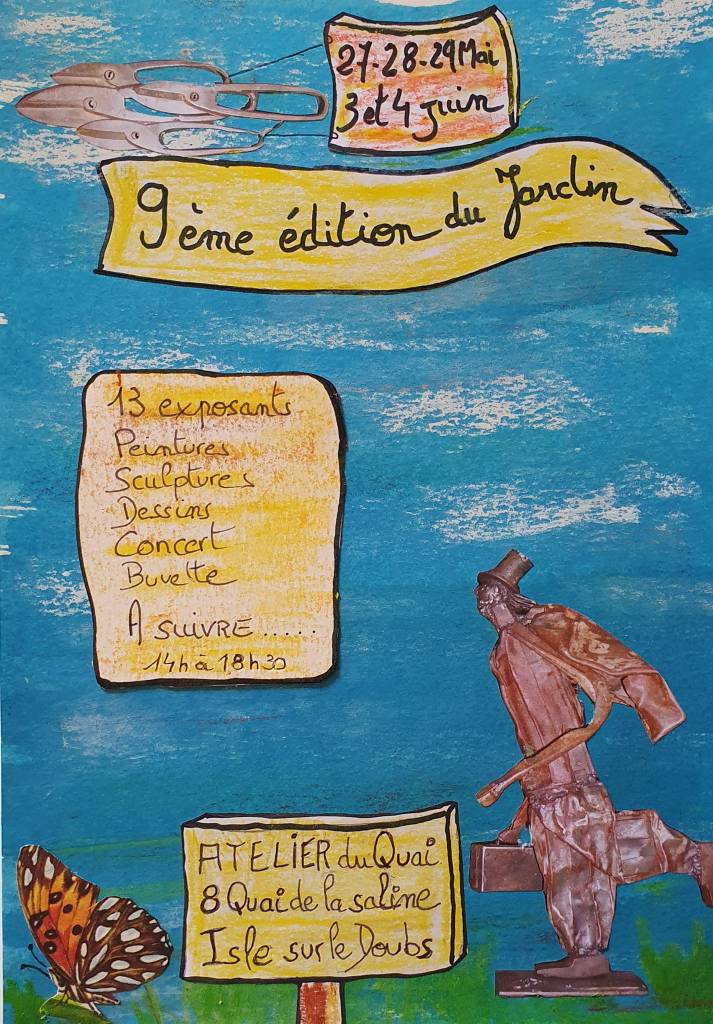 27-28-29 Mai
3 et 4 juin
9ème édition du Jardin
13 exposants
Peintures
Sculptures
Dessins
Concert
Buvette
A SUIVRE.....
14h à 18h30
ATELIER du Quai
8 Quai de la saline
Isle sur le Doubs